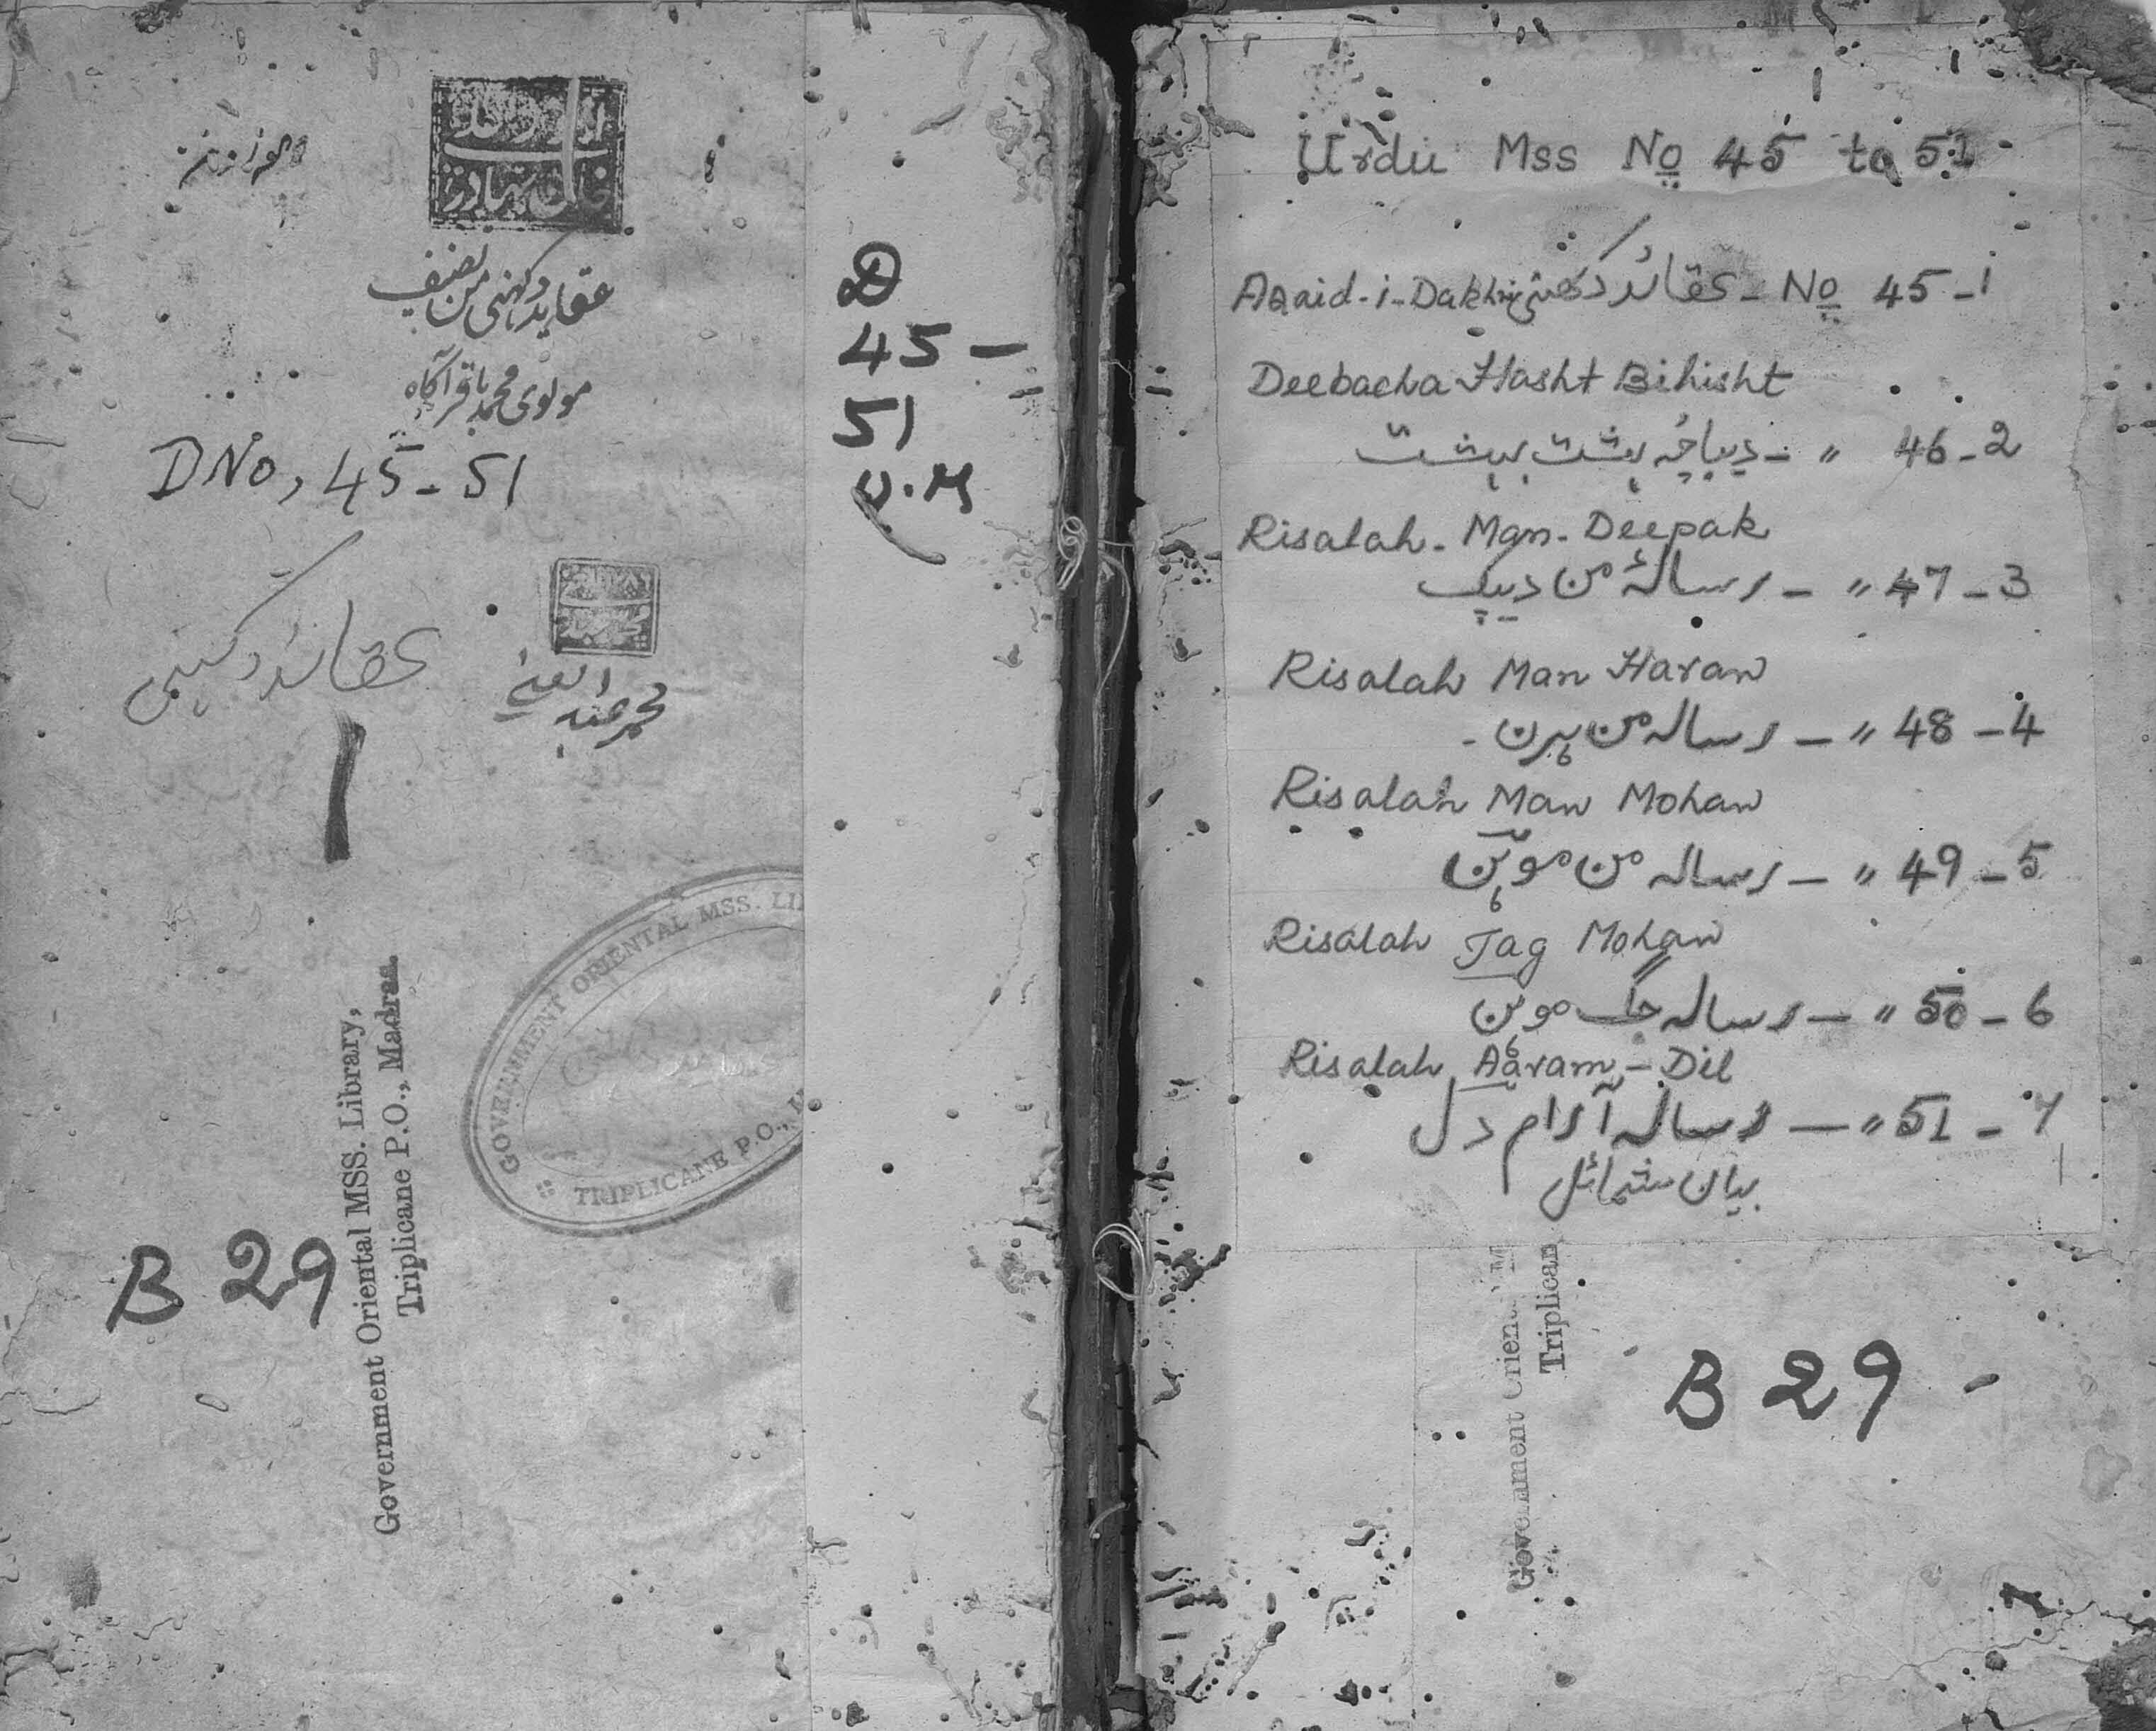 عقاید دکهنی من تصنیف
مولوی محمد باقر آگاه
D No, 45 - 51
عقائد دکہنی
محمد عبد الغنی
1
GOVERNMENT ORIENTAL MSS. LI
TRIPLICANE P.O.,
Government Oriental MSS. Library,
Triplicane P.O., Madras.
B 29
D
45 -
51
U.M
Urdu Mss No 45 to 51
Aqaid-i-Dakhni عقائد دکھنی - No 45 - 1
Deebacha Hasht Bihisht
دیباچہ ہشت بہشت - " 46 - 2
Risalah - Man - Deepak
رسالۂ من دیپک - " 47 - 3
Risalah Man Haran
رسالہ من ہرن - " 48 - 4
Risalah Man Mohan
رسالہ من موہن - " 49 - 5
Risalah Jag Mohan
رسالہ جگ موہن - " 50 - 6
Risalah Aaram - Dil
رسالہ آرام دل - " 51 - 7
بیان شمائل
Government Orien
Triplican
B 29 -